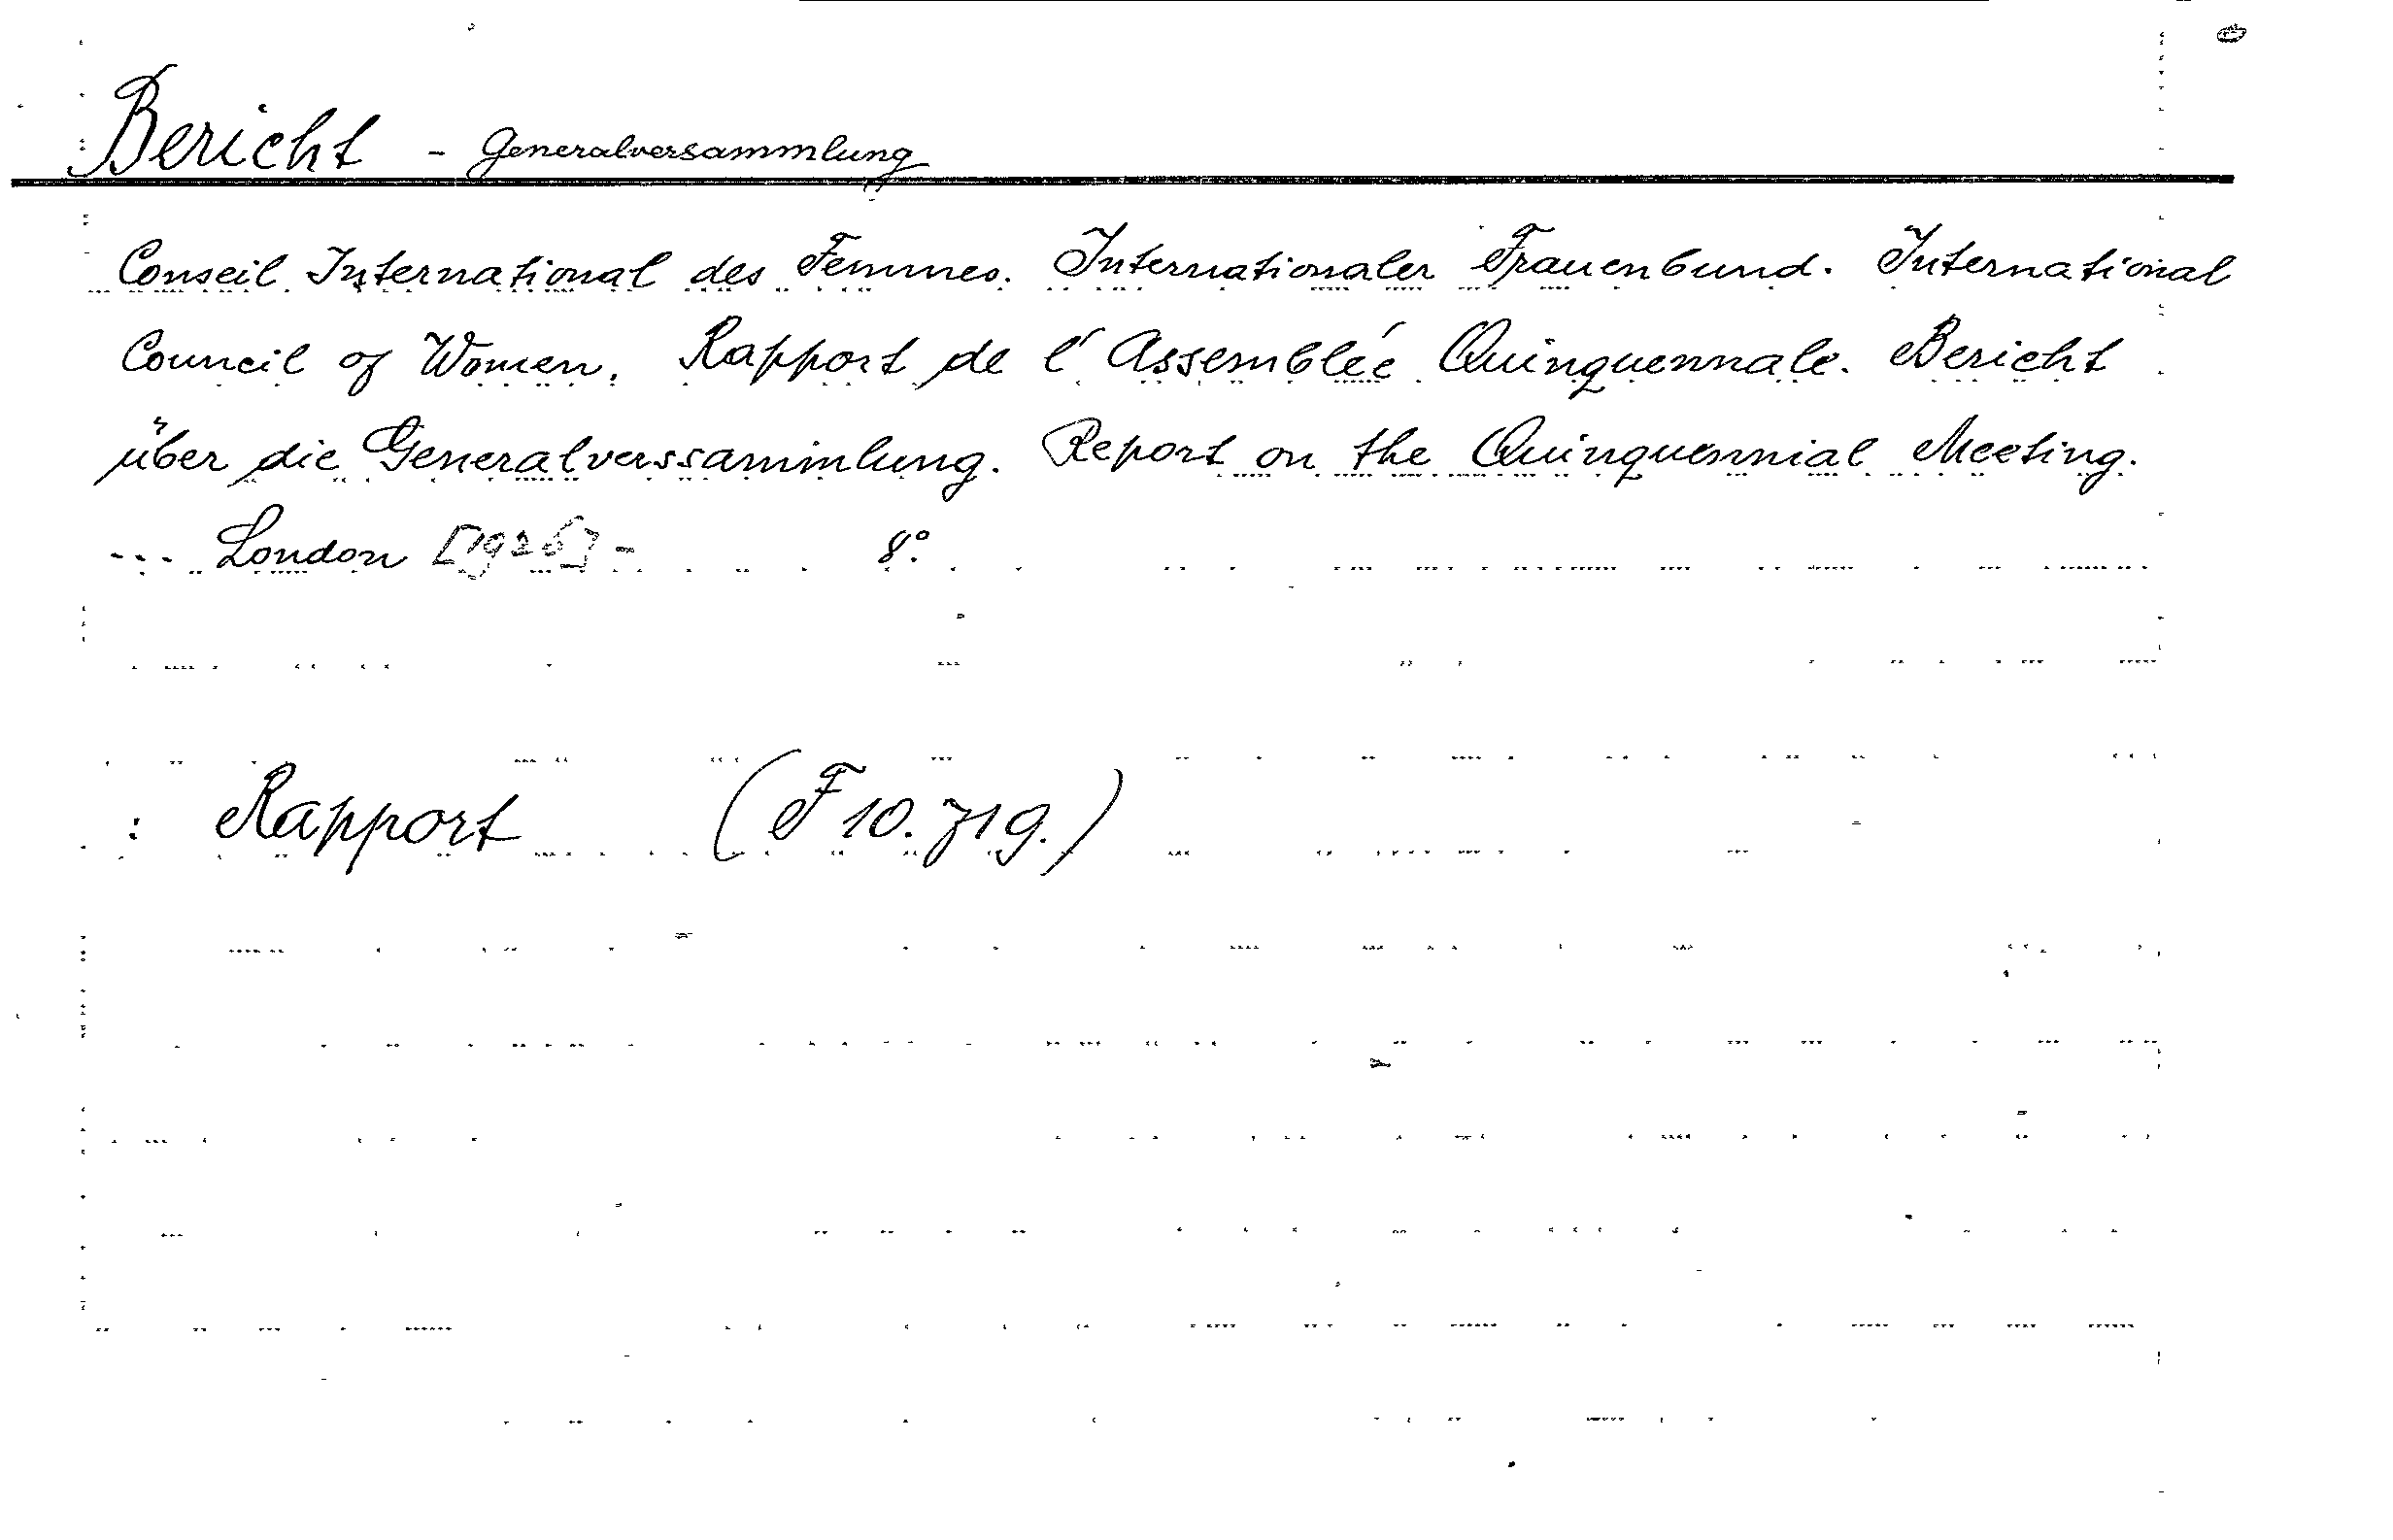 Bericht - Generalversammlung
Conseil International des Femmes. Internationaler Frauenbund. International
Council of Women. Rapport de l'Assemblée Quinquennale. Bericht
über die Generalverssammlung. Report on the Quinquennial Meeting.
--- London [1926] - 8°.
: Rapport (F 10.719.)